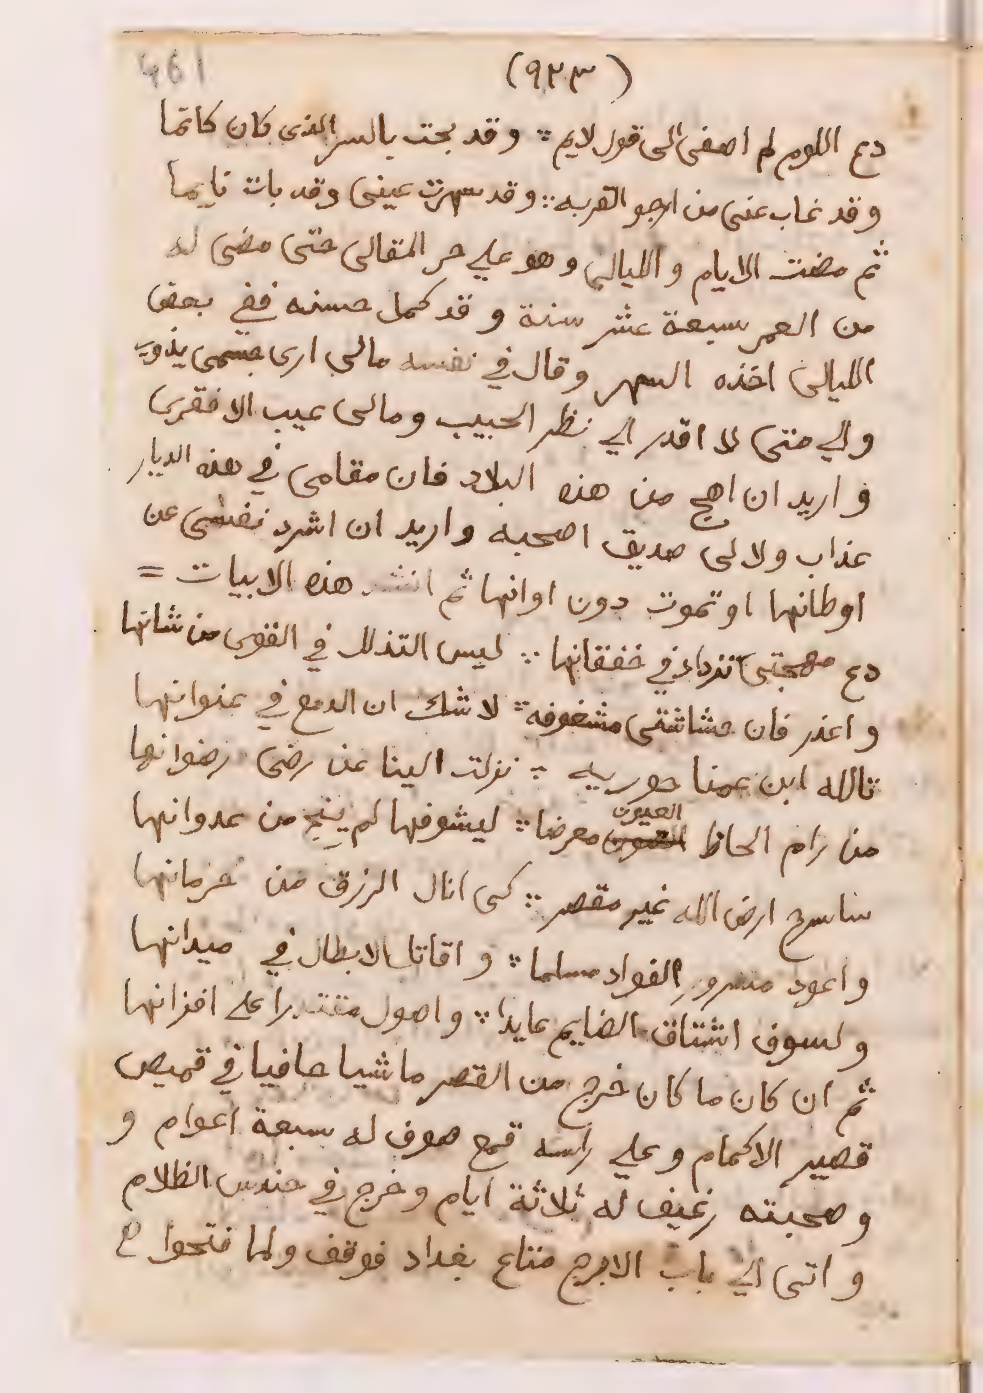 461
(٩٢٣)
دع اللوم لم اصغى الى قول لايم ∴ وقد بحت بالسر الذى كان كاتما
وقد غاب عنى من ارجو القربه ∴ وقد سهرت عينى وقد بات نايما
ثم مضت الايام والليالى وهو على حر المقالى حتى مضى له
من العمر سبعة عشر سنة وقد كمل حسنه ففى بعض
الليالى اخذه السهر وقال فى نفسه مالى ارى جسمى يذوب
والى متى لا اقدر الى نظر الحبيب ومالى عيب الا فقرى
واريد ان اهج من هذه البلاد فان مقامى فى هذه الديار
عذاب ولا لى صديق اصحبه واريد ان اشرد نفسى عن
اوطانها او تموت دون اوانها ثم انشد هذه الابيات =
دع مهجتى تزداد فى خفقانها ∴ ليس التذلل فى القوى من شانها
واعذر فان حشاشتى مشغوفه ∴ لا شك ان الدمع فى عنوانها
تالله ابن عمنا حوريه ∴ نزلت الينا عن رضى رضوانها
من رام الحاظ العيون معرضا ∴ ليشوفها لم ينج من عدوانها
ساسرح ارض الله غير مقصر ∴ كى انال الرزق من حرمانها
واعود مسرور الفواد مسلما ∴ واقاتل الابطال فى ميدانها
ولسوف اشتاق الضايم عايدا ∴ واصول مقتدرا على اقرانها
ثم ان كان ما كان خرج من القصر ماشيا حافيا فى قميص
قصير الاكمام وعلى راسه قمع صوف له سبعة اعوام و
وصحبته رغيف له ثلاثة ايام وخرج فى حندس الظلام
واتى الى باب الابرج متاع بغداد فوقف ولما فتحوا